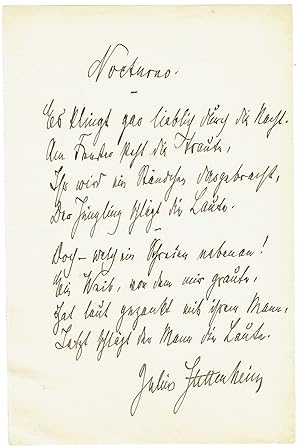 Nocturno.
Es klingt gar lieblich durch die Nacht.
Am Fenster steht die Traute,
Ihr wird ein Ständchen dargebracht,
Der Jüngling schlägt die Laute.
Doch – welch ein Schreien nebenan!
Ein Weib, vor dem mir graute,
Hat laut gezankt mit ihrem Mann,
Jetzt schlägt der Mann die Laute.
Julius Stettenheim